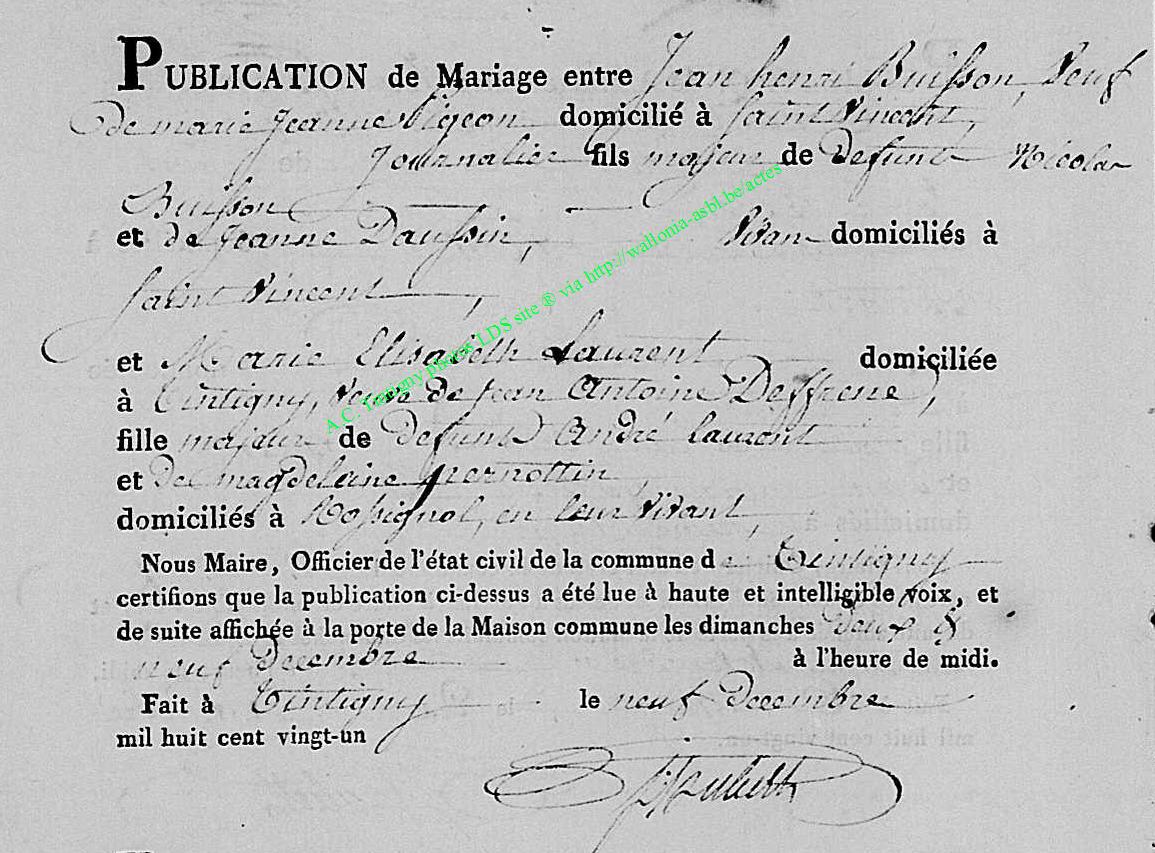 PUBLICATION de Mariage entre Jean henri Buisson, Veuf
de marie Jeanne Pigeon domicilié à Saint Vincent,
Journalier fils majeur de Defunt Nicolas
Buisson
et de Jeanne Daussin, Vivan domiciliés à
Saint Vincent,
et Marie Elisabeth Laurent domiciliée
à Tintigny, veuve de Jean Antoine Deffrene,
fille majeure de defunt André Laurent
et de magdelaine pernottin,
domiciliés à Rossignol, en leur Vivant,
Nous Maire, Officier de l'état civil de la commune de Tintigny
certifions que la publication ci-dessus a été lue à haute et intelligible voix, et
de suite affichée à la porte de la Maison commune les dimanches deux &
neuf decembre à l'heure de midi.
Fait à Tintigny le neuf Decembre
mil huit cent vingt-un
A.C. Tintigny photos LDS site ® via http://wallonia-asbl.be/actes